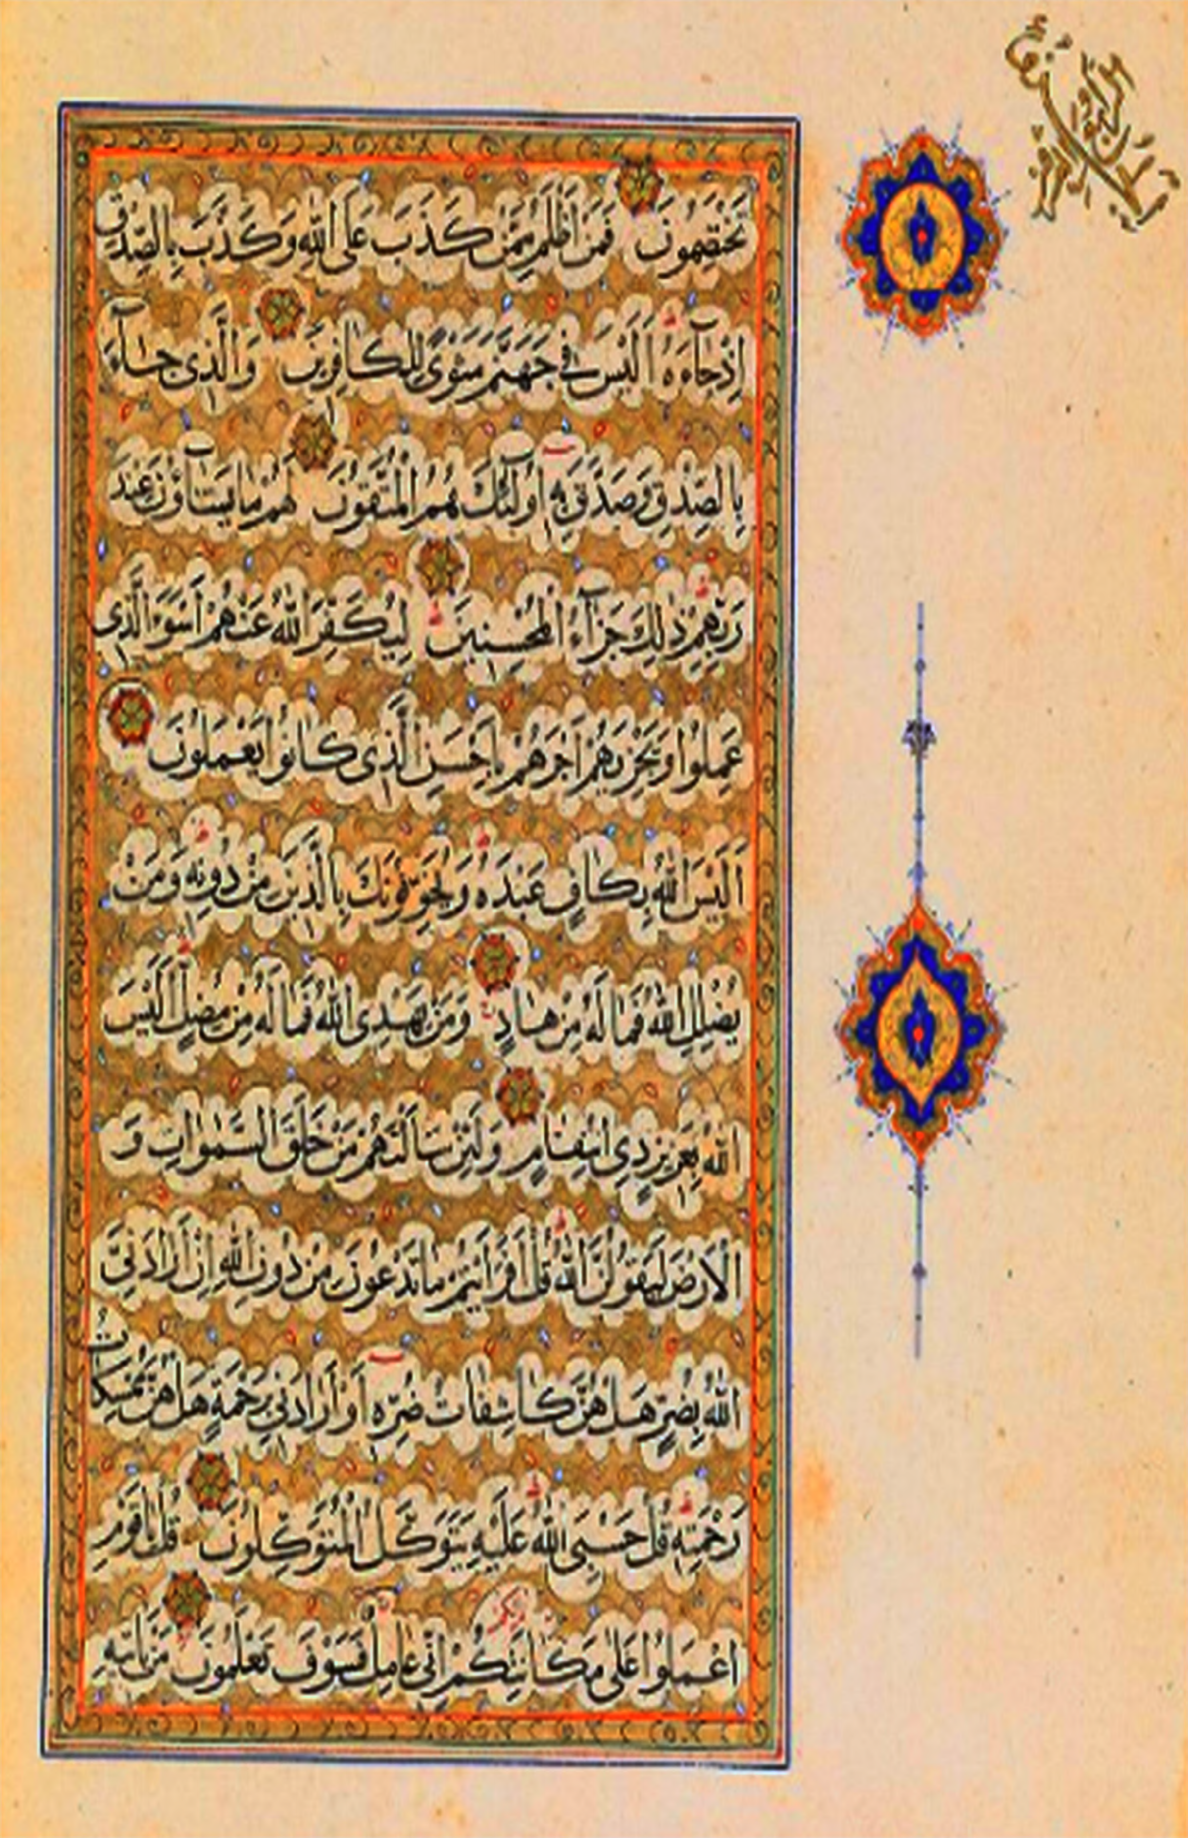 تَخْتَصِمُونَ فَمَنْ أَظْلَمُ مِمَّنْ كَذَبَ عَلَى اللَّهِ وَكَذَّبَ بِالصِّدْقِ
إِذْ جَآءَهُ أَلَيْسَ فِي جَهَنَّمَ مَثْوًى لِلْكَافِرِينَ وَالَّذِي جَآءَ
بِالصِّدْقِ وَصَدَّقَ بِهِ أُولَٰئِكَ هُمُ الْمُتَّقُونَ لَهُمْ مَا يَشَآؤُنَ عِنْدَ
رَبِّهِمْ ذَٰلِكَ جَزَآءُ الْمُحْسِنِينَ لِيُكَفِّرَ اللَّهُ عَنْهُمْ أَسْوَءَ الَّذِي
عَمِلُوا وَيَجْزِيَهُمْ أَجْرَهُمْ بِأَحْسَنِ الَّذِي كَانُوا يَعْمَلُونَ
أَلَيْسَ اللَّهُ بِكَافٍ عَبْدَهُ وَيُخَوِّفُونَكَ بِالَّذِينَ مِنْ دُونِهِ وَمَنْ
يُضْلِلِ اللَّهُ فَمَا لَهُ مِنْ هَادٍ وَمَنْ يَهْدِي اللَّهُ فَمَا لَهُ مِنْ مُضِلٍّ أَلَيْسَ
اللَّهُ بِعَزِيزٍ ذِي انْتِقَامٍ وَلَئِنْ سَأَلْتَهُمْ مَنْ خَلَقَ السَّمٰوَاتِ وَ
الْأَرْضَ لَيَقُولُنَّ اللَّهُ قُلْ أَفَرَأَيْتُمْ مَا تَدْعُونَ مِنْ دُونِ اللَّهِ إِنْ أَرَادَنِيَ
اللَّهُ بِضُرٍّ هَلْ هُنَّ كَاشِفَاتُ ضُرِّهِ أَوْ أَرَادَنِي بِرَحْمَةٍ هَلْ هُنَّ مُمْسِكَاتُ
رَحْمَتِهِ قُلْ حَسْبِيَ اللَّهُ عَلَيْهِ يَتَوَكَّلُ الْمُتَوَكِّلُونَ قُلْ يَا قَوْمِ
اعْمَلُوا عَلَى مَكَانَتِكُمْ إِنِّي عَامِلٌ فَسَوْفَ تَعْلَمُونَ مَنْ يَأْتِيهِ